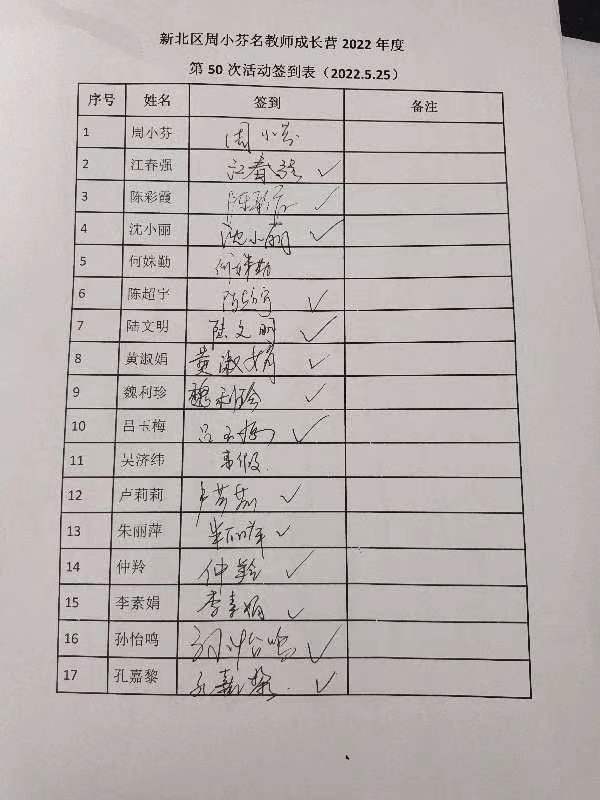 新北区周小芬名教师成长营 2022 年度
第 50 次活动签到表（2022.5.25）
序号 姓名 签到 备注
1 周小芬 周小芬
2 江春强 江春强 ✓
3 陈彩霞 陈彩霞 ✓
4 沈小丽 沈小丽 ✓
5 何姝勤 何姝勤
6 陈超宇 陈超宇 ✓
7 陆文明 陆文明 ✓
8 黄淑娟 黄淑娟 ✓
9 魏利珍 魏利珍 ✓
10 吕玉梅 吕玉梅 ✓
11 吴济纬 事假
12 卢莉莉 卢莉莉 ✓
13 朱丽萍 朱丽萍 ✓
14 仲羚 仲羚 ✓
15 李素娟 李素娟 ✓
16 孙怡鸣 孙怡鸣 ✓
17 孔嘉黎 孔嘉黎 ✓